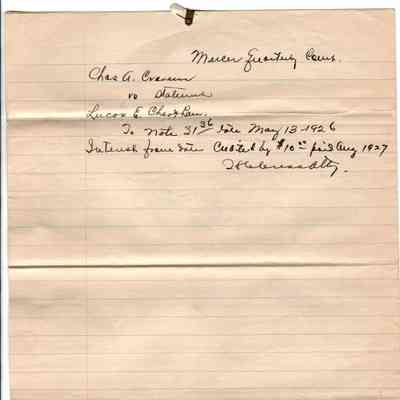 Mercer Quarterly Court.
Chas A.
vs Statement
Lucas E.
To Note 31 36 date May 13-1926
Interest from date Credit by $10 00 paid Aug 1927
Atty.